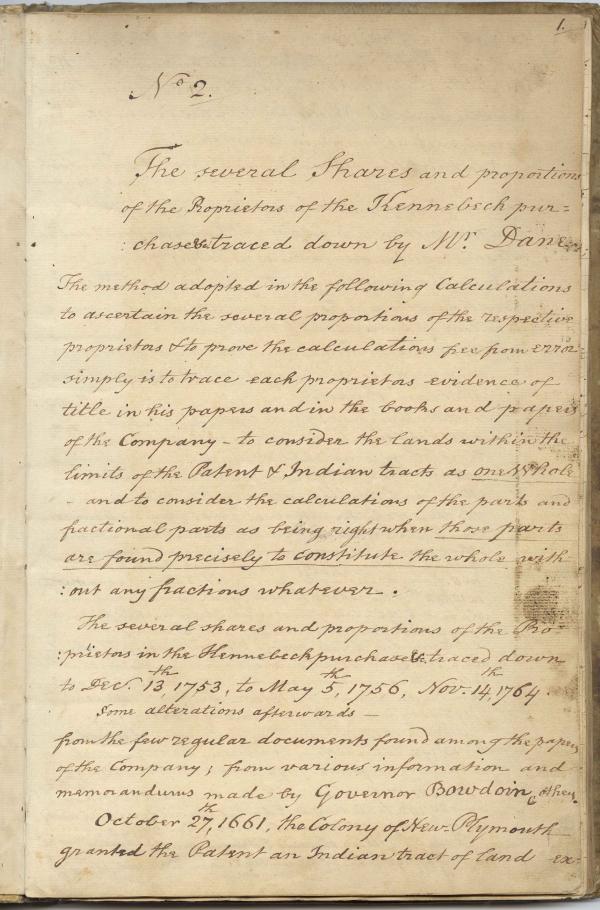 1.
No 2.
The several Shares and proportions
of the Proprietors of the Kennebeck pur=
:chase & traced down by Mr. Dane
The method adopted in the following Calculations
to ascertain the several proportions of the respective
proprietors & to prove the calculations free from error
simply is to trace each proprietors evidence of
title in his papers and in the books and papers
of the Company - to consider the lands within the
limits of the Patent & Indian tracts as one Whole
- and to consider the calculations of the parts and
fractional parts as being right when those parts
are found precisely to constitute the whole with
:out any fractions whatever.
The several shares and proportions of the Pro=
:prietors in the Kennebeck purchase & traced down
to Dec. 13th, 1753, to May 5th, 1756, Nov. 14th, 1764
Some alterations afterwards -
from the few regular documents found among the papers
of the Company; from various information and
memorandums made by Governor Bowdoin, & others.
October 27th, 1661, the Colony of New Plymouth
granted the Patent an Indian tract of land ex=